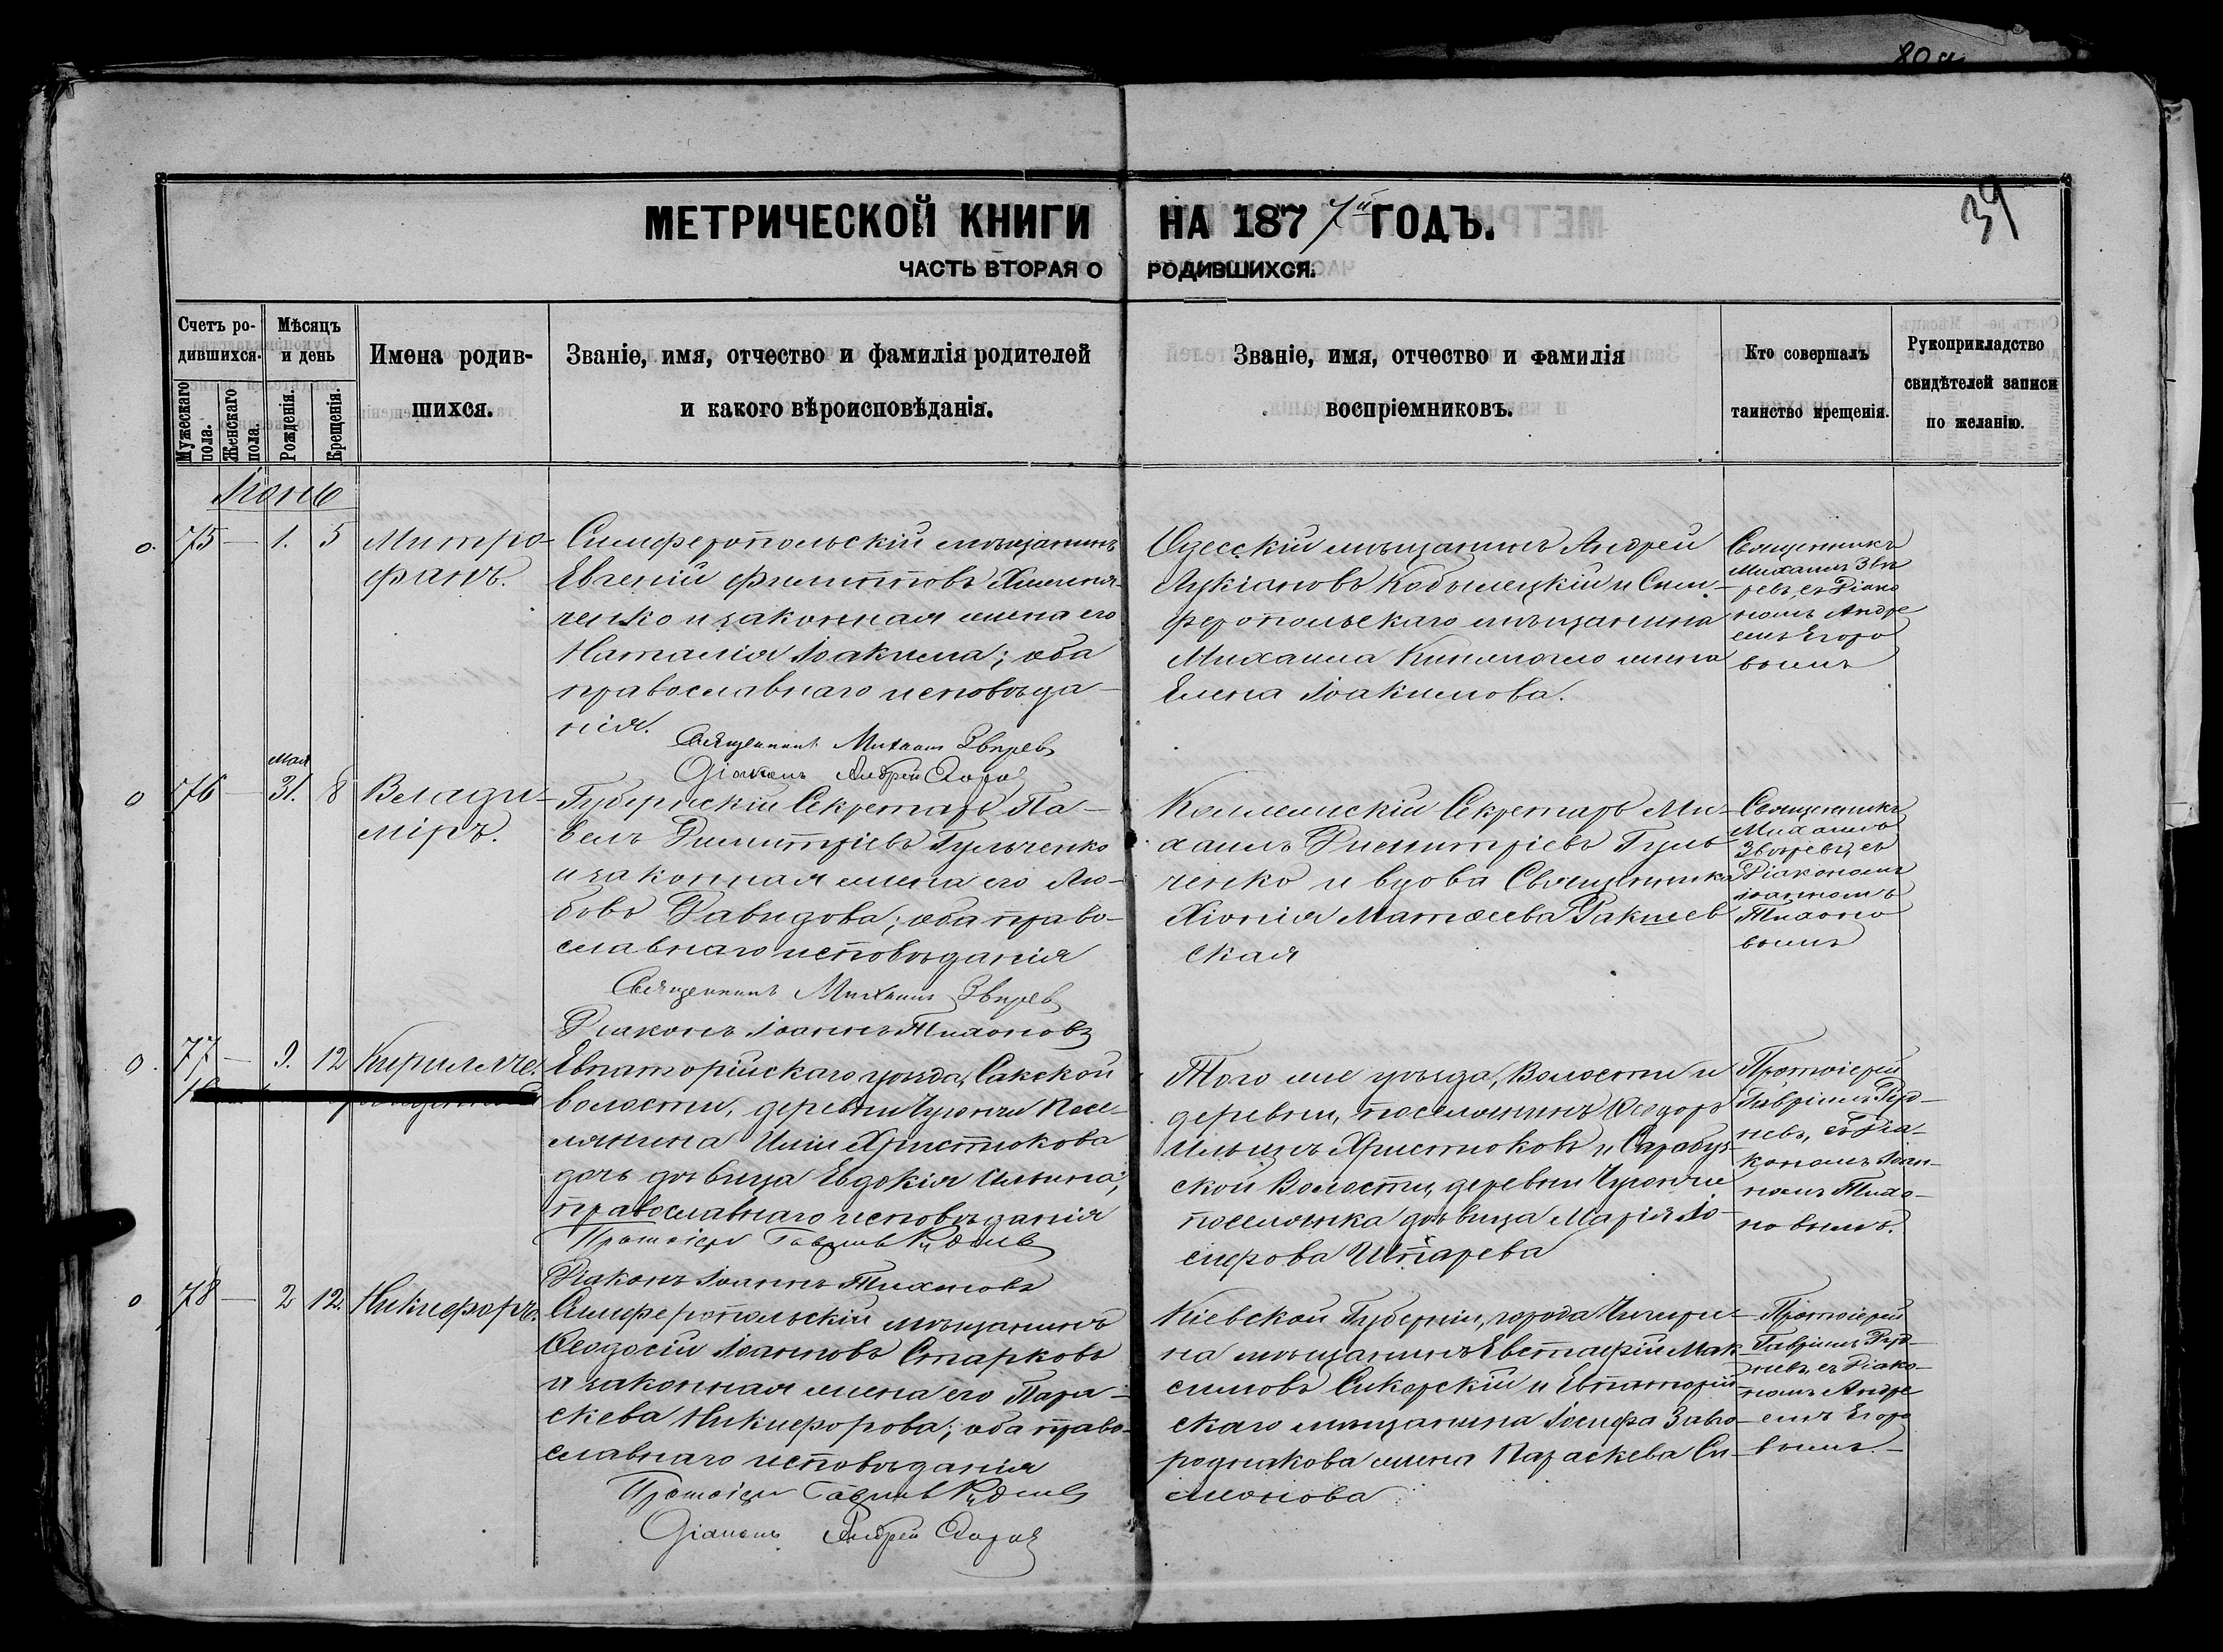 80а
39
МЕТРИЧЕСКОЙ КНИГИ НА 1877й ГОДЪ.
ЧАСТЬ ВТОРАЯ О РОДИВШИХСЯ.
Счетъ ро-
дившихся.
Мужескаго пола.
Женскаго пола.
Мѣсяцъ
и день
Рожденія.
Крещенія.
Имена родив-
шихся.
Званіе, имя, отчество и фамилія родителей
и какого вѣроисповѣданія.
Званіе, имя, отчество и фамилія
воспріемниковъ.
Кто совершалъ
таинство крещенія.
Рукоприкладство
свидѣтелей записи
по желанію.
Іюнь
75 — 1. 5
Митро-
фанъ.
Симферопольскій мѣщанинъ
Евгеній Филипповъ
и законная жена его
Наталія Іоакима; оба
православнаго исповѣда-
нія.
Священникъ Михаилъ Звѣревъ
Діаконъ Андрей Егоровъ
Одесскій мѣщанинъ Андрей
Лукіановъ Кобылецкій и Сим-
феропольскаго мѣщанина
Михаила жена
Елена Іоакимова.
Священникъ
Михаилъ Звѣ
ревъ, съ Діако
номъ Андре
емъ Егоро
вымъ
76 — Мая 31. 8
Влади-
міръ.
Губернскій Секретарь Па-
велъ Димитріевъ Гульченко
и законная жена его Лю-
бовь Давидова; оба право-
славнаго исповѣданія
Священникъ Михаилъ Звѣревъ
Діаконъ Іоаннъ Тихоновъ
Коллежскій Секретарь Ми-
хаилъ Димитріевъ Гуль
ченко и вдова Священника
Хіонія Матѳеева Ракшев
ская
Священникъ
Михаилъ
Звѣревъ, съ
Діакономъ
Іоанномъ
Тихоно
вымъ
77 — 9. 12
Кириллъ
Евпаторійскаго уѣзда, Сакской
волости, деревни Чуюнчи посе-
лянина Иліи Христюкова
дочь дѣвица Евдокія Ильина;
православнаго исповѣданія
Протоіерей Гавріилъ Рудневъ
Діаконъ Іоаннъ Тихоновъ
Того же уѣзда, Волости и
деревни, поселянинъ Ѳеодоръ
Ильинъ Христюковъ и Сарабуз-
ской Волости, деревни Чуюнчи
поселянка дѣвица Марія Іо-
сифова
Протоіерей
Гавріилъ Руд-
невъ, съ Діа-
кономъ Іоан-
номъ Тихо-
новымъ.
78 — 2 12.
Никифоръ.
Симферопольскій мѣщанинъ
Ѳеодосій Іоанновъ Старковъ
и законная жена его Пара-
скева Никифорова; оба право-
славнаго исповѣданія
Протоіерей Гавріилъ Рудневъ
Діаконъ Андрей Егоровъ
Кіевской Губерніи, города Чигири-
на мѣщанинъ Евстафій Мак-
симовъ Сикорскій и Евпаторій
скаго мѣщанина Іосифа Заво-
роднякова жена Параскева Си-
монова
Протоіерей
Гавріилъ Руд-
невъ, съ Діако-
номъ Андре
емъ Егоро
вымъ.